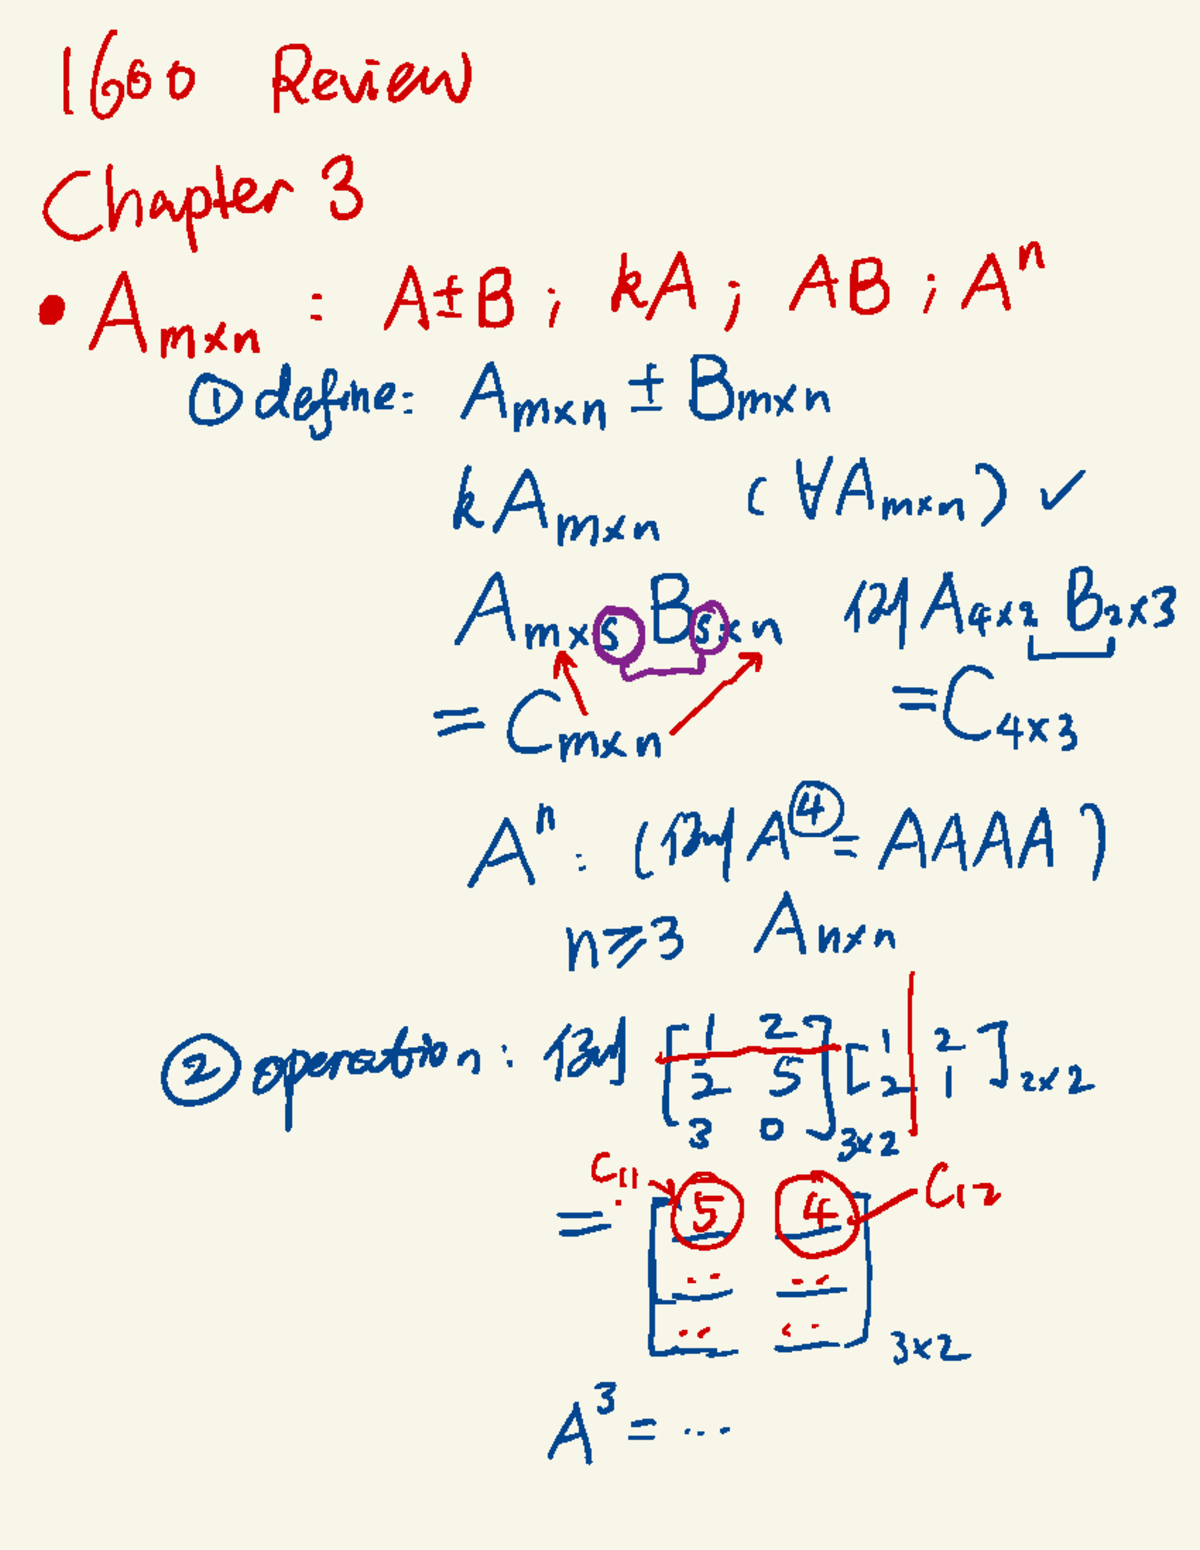 1600 Review
Chapter 3
• A m×n : A±B ; kA ; AB ; Aⁿ
① define: A m×n ± B m×n
kA m×n (∀A m×n) ✓
A m×s B s×n 例 A 4×2 B 2×3
= C m×n = C 4×3
Aⁿ : (例 A④ = AAAA)
n≥3 A n×n
② operation: 例 [1 2 [1 2
2 5 2 1] 2×2
3 0] 3×2
C₁₁ C₁₂
= [5 4
] 3×2
A³ = ...